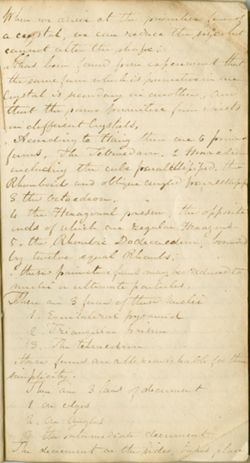 When we arrive at the primitive form of
a crystal, we can reduce the size but
cannot alter the shape.
It has been found from experiment that
the same form which is primitive in one
Crystal is secondary in another, and
that the same primitive form exists
in different Crystals.
According to there are 6 primitive
forms. The Tetrahedron. 2
including the cube parallelopiped, the
Rhomboid and oblique angled parallelop
3 the Octahedron.
4 the Hexagonal prism, the opposite
ends of which are regular Hexagons
5. the Rhombic Dodecahedron, bounded
by twelve equal Rhombs.
these primitive forms may be reduced to
nuclei or ultimate particles.
There are 3 forms of these nuclei
1. Equilateral pyramid
2. Triangular prism
3. The
these forms are all remarkable for their
simplicity.
There are 3 laws of decrement
1. on edges
2. on Angles
3 the intermediate decrement
The decrement on the sides, takes place